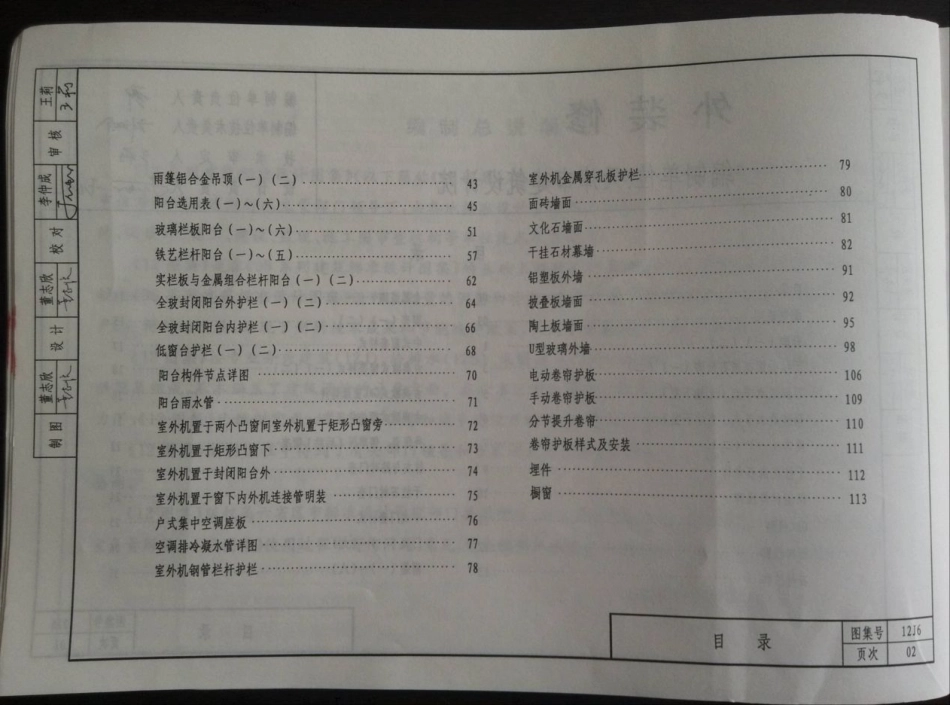 雨篷铝合金吊顶(一)(二) 43
阳台选用表(一)～(六) 45
玻璃栏板阳台(一)～(六) 51
铁艺栏杆阳台(一)～(五) 57
实栏板与金属组合栏杆阳台(一)(二) 62
全玻封闭阳台外护栏(一)(二) 64
全玻封闭阳台内护栏(一)(二) 66
低窗台护栏(一)(二) 68
阳台构件节点详图 70
阳台雨水管 71
室外机置于两个凸窗间室外机置于矩形凸窗旁 72
室外机置于矩形凸窗下 73
室外机置于封闭阳台外 74
室外机置于窗下内外机连接管明装 75
户式集中空调座板 76
空调排冷凝水管详图 77
室外机钢管栏杆护栏 78
室外机金属穿孔板护栏 79
面砖墙面 80
文化石墙面 81
干挂石材幕墙 82
铝塑板外墙 91
披叠板墙面 92
陶土板墙面 95
U型玻璃外墙 98
电动卷帘护板 106
手动卷帘护板 109
分节提升卷帘 110
卷帘护板样式及安装 111
埋件 112
橱窗 113
王莉
审核
李仲成
校对
董志欣
设计
董志欣
制图
目录
图集号 12J6
页次 02